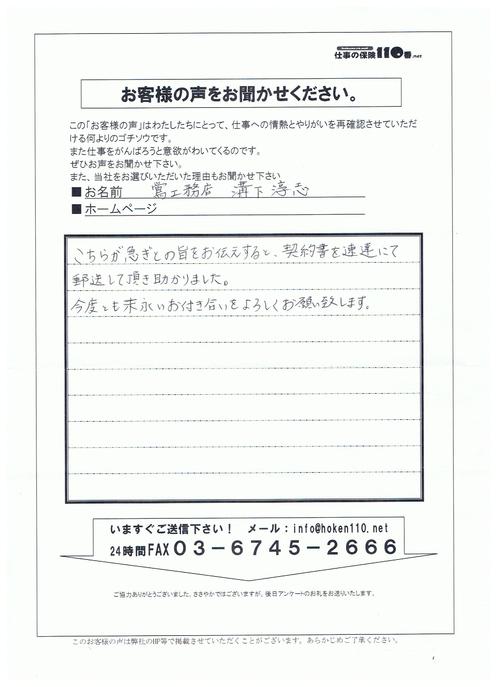 仕事の保険110番.net
お客様の声をお聞かせください。
この「お客様の声」はわたしたちにとって、仕事への情熱とやりがいを再確認させていただ
ける何よりのゴチソウです。
また仕事をがんばろうと意欲がわいてくるのです。
ぜひお声をお聞かせ下さい。
また、当社をお選びいただいた理由もお聞かせ下さい
■お名前 鶯工務店 溝下 淳志
■ホームページ
こちらが急ぎとの旨をお伝えすると、契約書を速達にて
郵送して頂き助かりました。
今度とも末永いお付き合いをよろしくお願い致します。
いますぐご送信下さい! メール:info@hoken110.net
24時間FAX03-6745-2666
ご協力ありがとうございました。ささやかではございますが、後日アンケートのお礼をお送りいたします。
このお客様の声は弊社のHP等で掲載させていただくことがございます。あらかじめご了承ください。